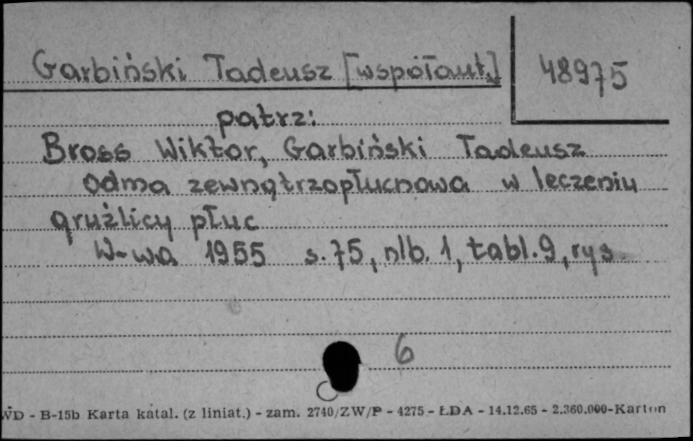 Garbiński Tadeusz [współaut.] 48975
patrz:
Bross Wiktor, Garbiński Tadeusz
Odma zewnątrzopłucnowa w leczeniu
gruźlicy płuc
W-wa 1955 s. 75, nlb. 1, tabl. 9, rys.
6
WD - B-15b Karta katal. (z liniat.) - zam. 2740/ZW/P - 4275 - ŁDA - 14.12.65 - 2.360.000-Karton